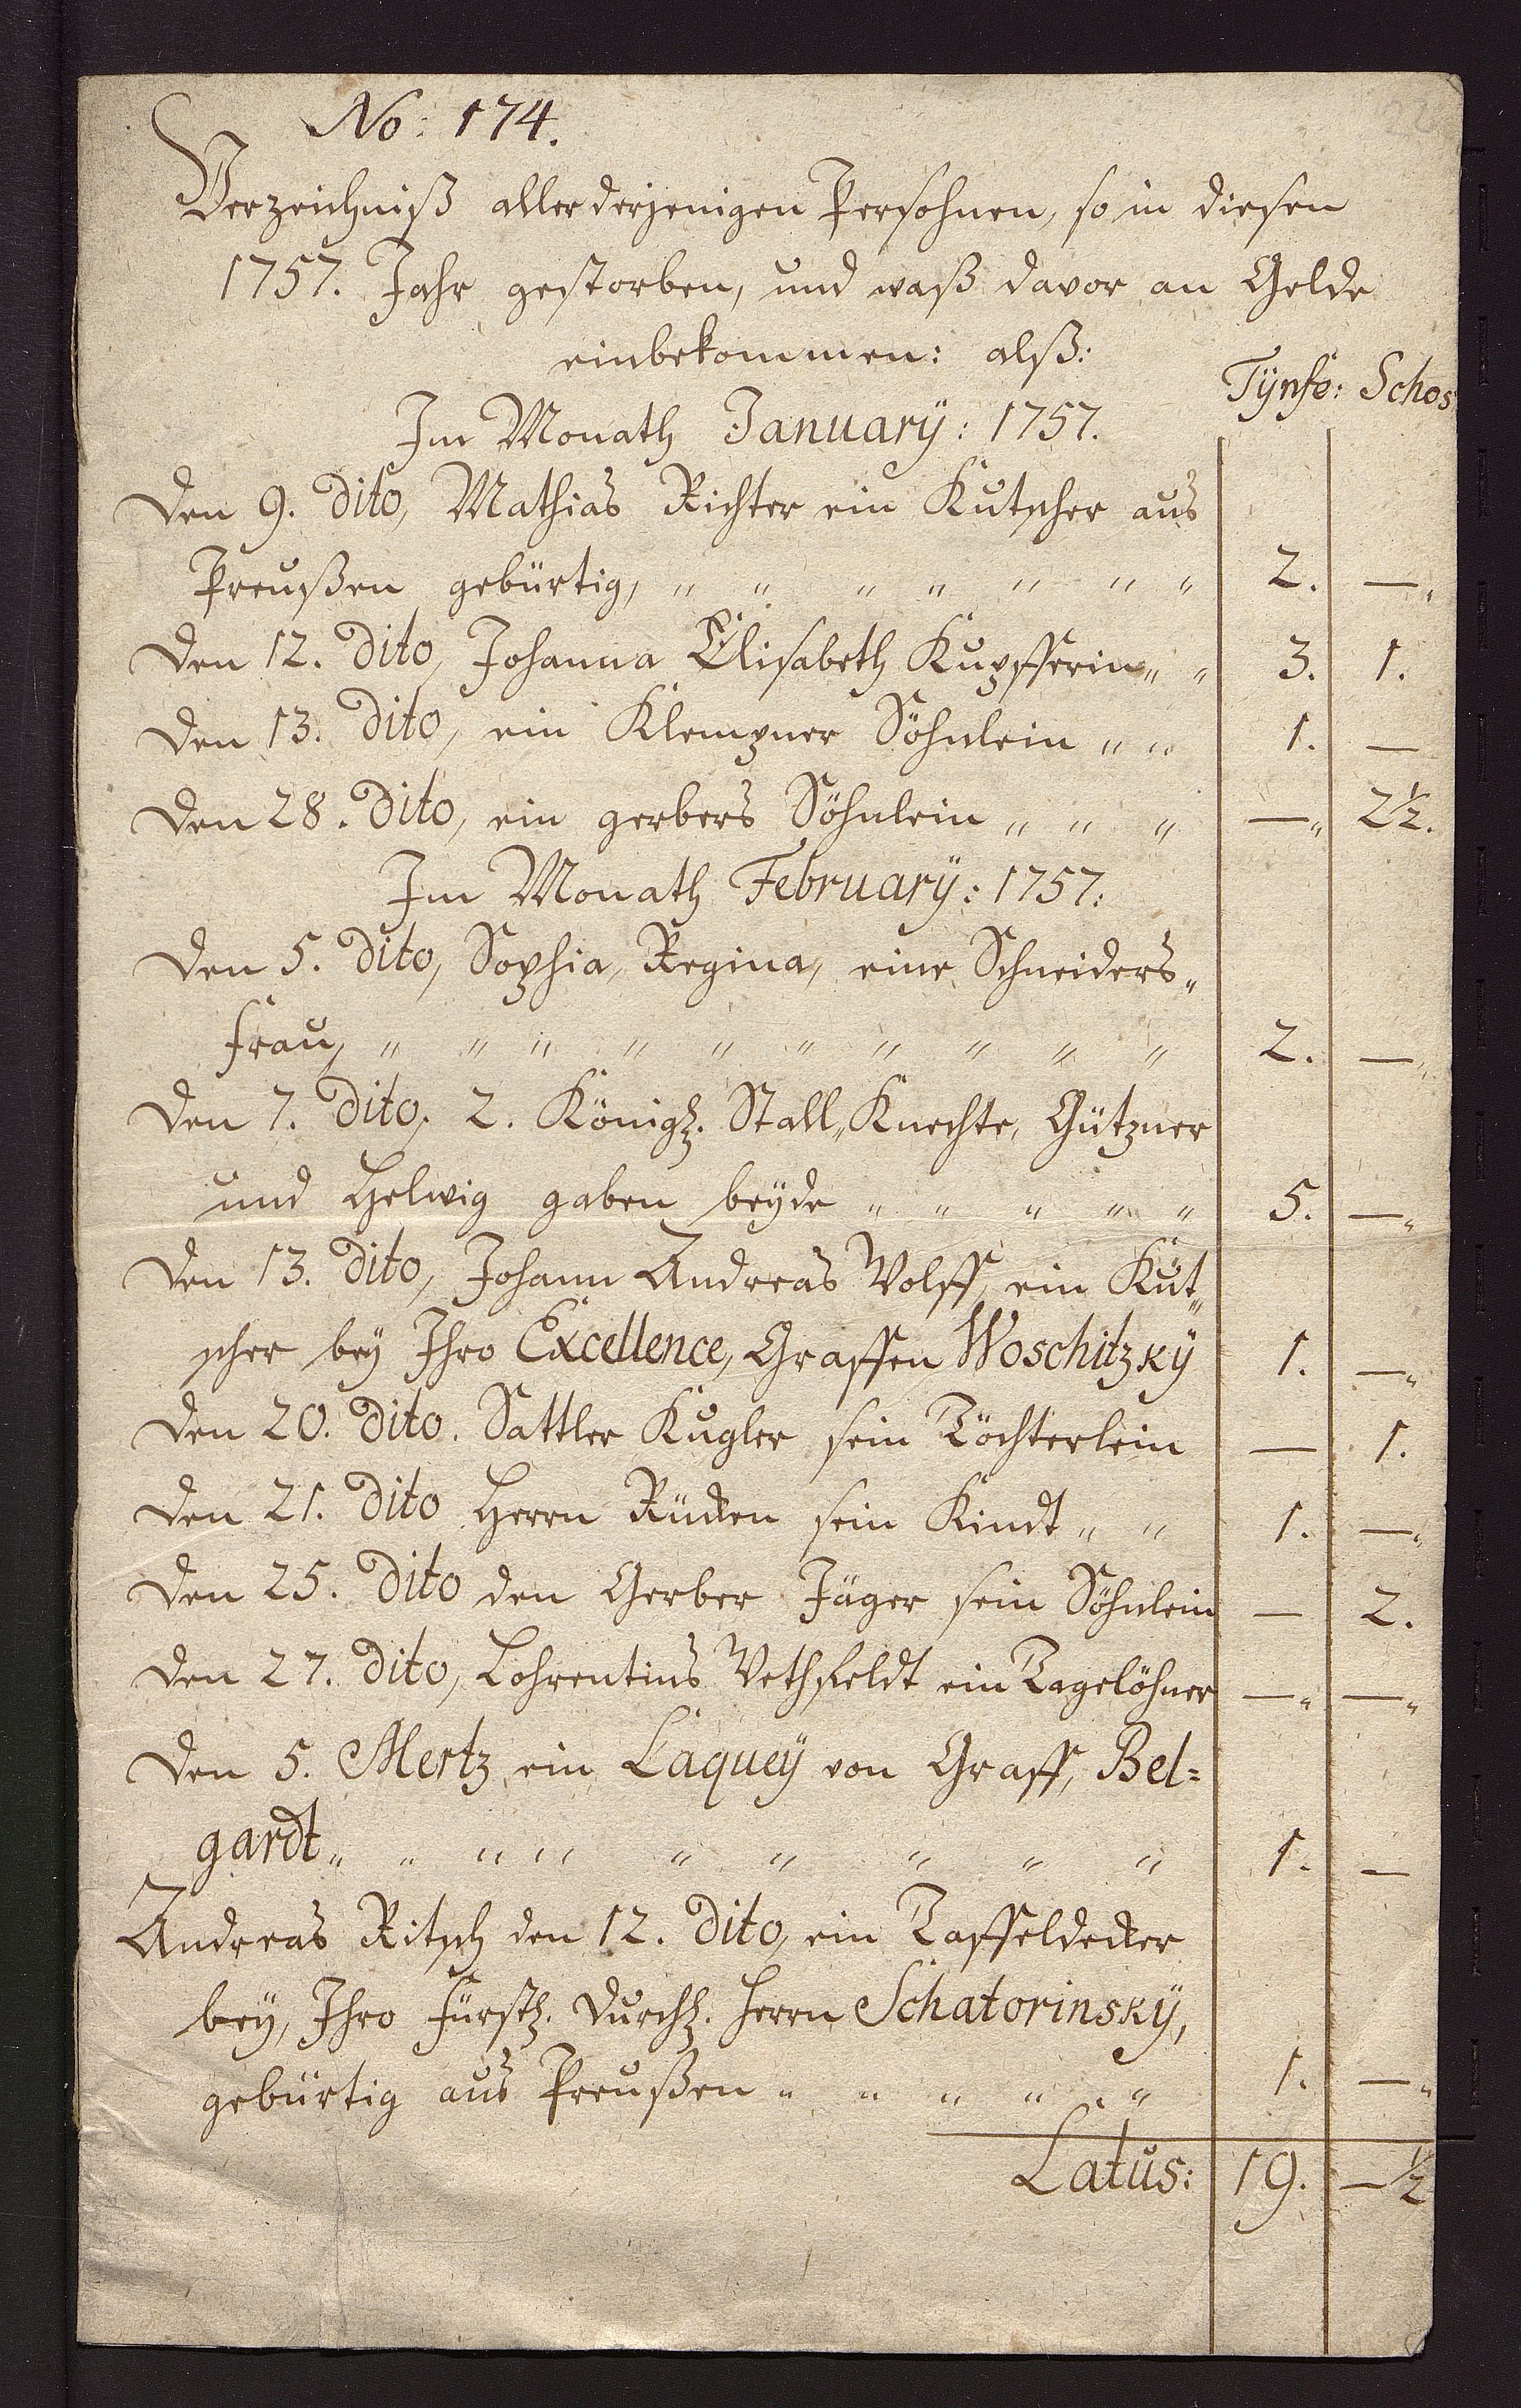 No: 174.
Verzeichniß aller derjenigen Persohnen, so in diesen
1757. Jahr gestorben, und waß davor an Gelde
einbekommen: alß:
Tÿnfe: Schos
Im Monath Januarÿ: 1757.
Den 9. dito, Mathias Richter ein Kutscher aus
Preußen gebürtig, " " " " " " " 2. —"
Den 12. dito, Johanna Elisabeth Kupfferin " " 3. 1.
Den 13. dito, ein Klempner Söhnlein " " 1. —
Den 28. dito, ein gerbers Söhnlein " " " —" 2½.
Im Monath Februarÿ: 1757:
Den 5. dito, Sophia, Regina, eine Schneiders"
frau, " " " " " " " " " " 2. —"
Den 7. dito, 2. Königl. Stall"Knechte, Gützner
und Helwig gaben beÿde " " " " " 5. —"
Den 13. dito, Johann Andreas Wolff, ein Kut"
scher beÿ Ihro Excellence, Graffen Woschitzkÿ 1. —"
Den 20. dito. Sattler Kugler sein Töchterlein — 1.
Den 21. dito Herrn Rücken sein Kindt " " 1. —"
Den 25. dito den Gerber Jäger sein Söhnlein — 2.
Den 27. dito, Lohrentius Vethfeldt ein Tagelöhner —" —"
Den 5. Mertz, ein Laqueÿ von Graff, Bel=
gardt " " " " " " " " " 1. —
Andreas Ritsch den 12. dito, ein Taffeldecker
beÿ, Ihro fürstl. Durchl. Herrn Schatorinskÿ,
gebürtig aus Preußen " " " " " 1. —"
Latus: 19. —½